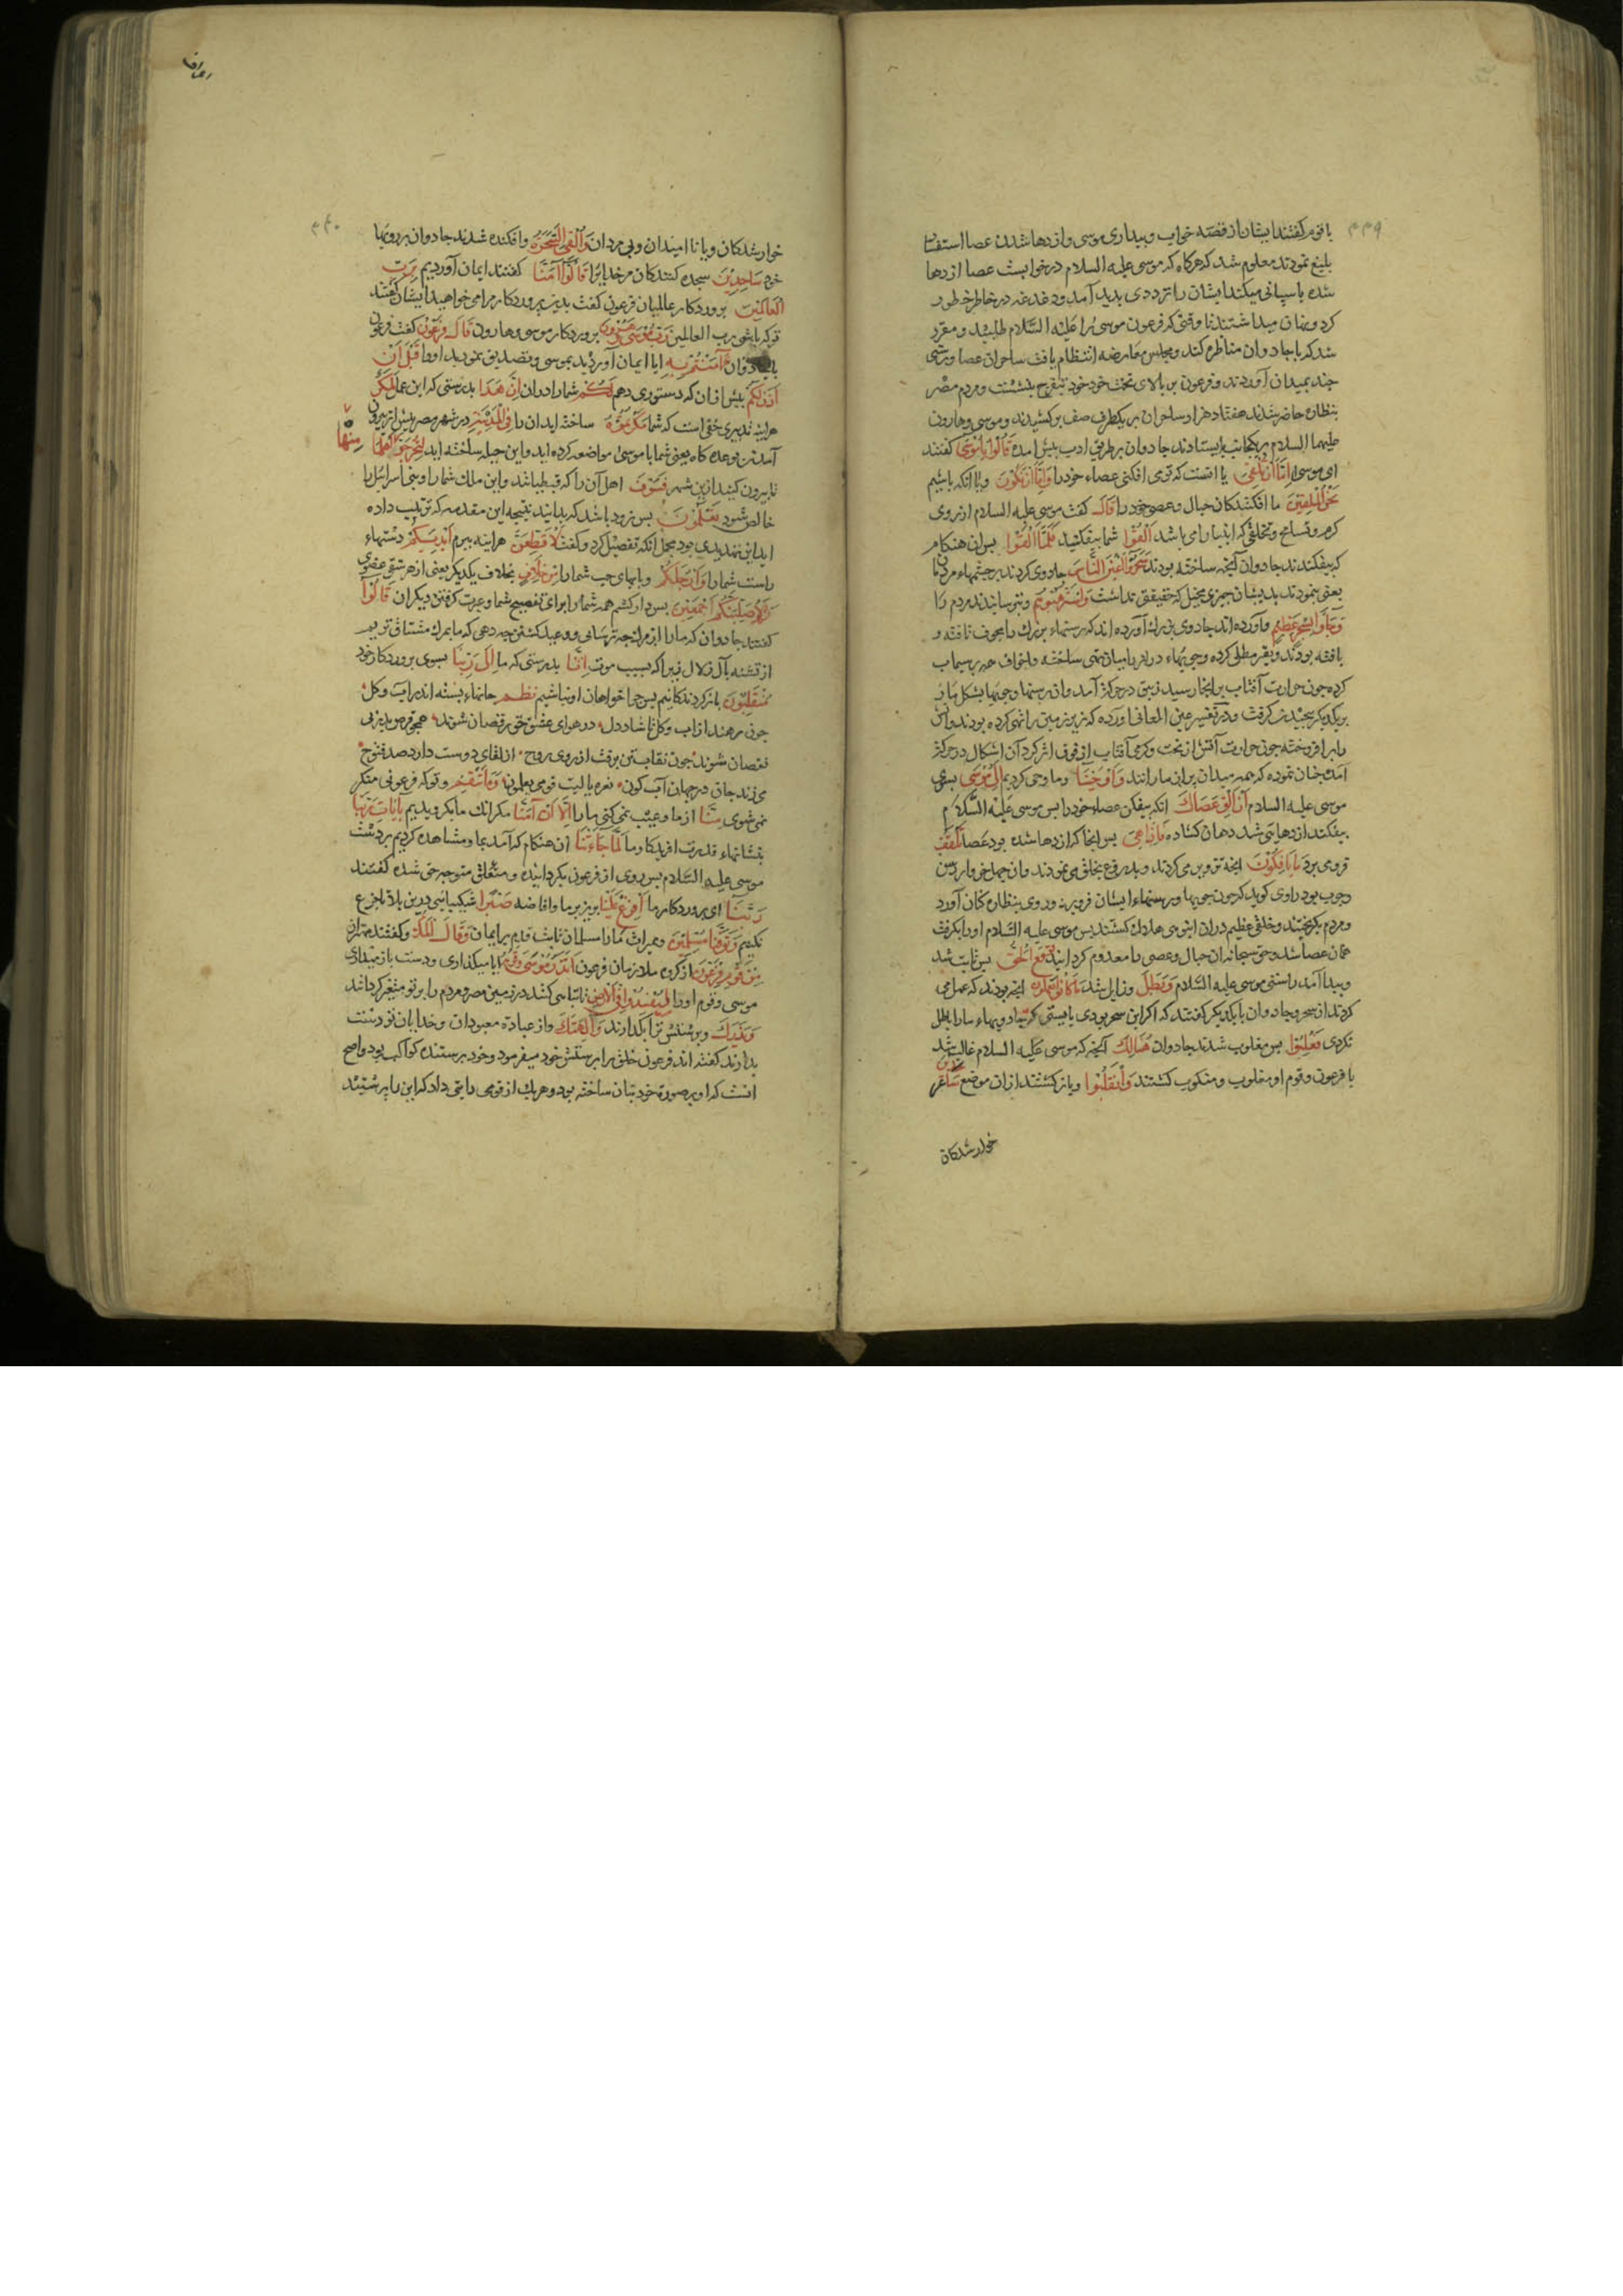 ۴۳۹
با قوم کفتند ایشان از قصّه خواب و بیداری موسی و ازدها شدن عصا استفسار
بلیغ نمودند معلوم شد که هرکاه که موسی علیه السلام در خوابست عصا ازدها
شده پاسبانی میکند ایشان را ترددی پدید آمد و دغدغه در خاطر خطور
کرد و پنهان میداشتند تا وقتی که فرعون موسی را علیه السّلام طلبید و مقرر
شد که با جادوان مناظره کند و مجلس معارضه انتظام یافت ساحران عصا ورسنی
چند بمیدان آوردند و فرعون بر بالای تخت خود بتفرج بنشست و مردم مصر
بنظاره حاضر شدند هفتاد هزار ساحران بر یکطرف صف برکشیدند و موسی و هارون
علیهما السلام بر یکجانب بایستادند جادوان بر طریق ادب پیش آمده قَالُوا یَا مُوسَی کفتند
ای موسی اِمَّا اَنْ تُلْقِیَ یا انست که تو می افکنی عصاء خود را وَاِمَّا اَنْ نَکُونَ و یا آنکه باشیم
نَحْنُ الْمُلْقِینَ ما افکنندکان حبال و عصی خود را قَالَ کفت موسی علیه السلام از روی
کرم و تسامح و تخلقی که انبیا را می باشد اَلْقُوا شما بیفکنید فَلَمَّا اَلْقَوْا پس آن هنکام
که بیفکندند جادوان آنچه ساخته بودند سَحَرُوا اَعْیُنَ النَّاسِ جادوی کردند بر چشمهاء مردمان
یعنی بنمودند بدیشان چیزی مخیل که حقیقتی نداشت وَاسْتَرْهَبُوهُمْ و بترسانیدند مردم را
وَجَاؤُا بِسِحْرٍ عَظِیمٍ و آورده اند جادوی بزرك آورده اند که رسنهاء بزرك را مجوف
بافته بودند و بقیر مطلی کرده و چوبهاء دراز را میان تهی ساخته و اجواف همه پر سیماب
کرده چون حرارت آفتاب بر ایشان رسید زیبق در حرکت آمد و آن رسنها و چوبها بشکل مار
بر یکدیکر پیچیدن کرفت و در تفسیر عین المعانی آورده که زیر زمین را تهی کرده بودند و آتش
را بر افروخته چون حرارت آتش از تحت و کرمی آفتاب از فوق اثر کرد آن اشکال در حرکت
آمد چنان نموده که همه میدان پر از مارانند وَاَوْحَیْنَا و ما وحی کردیم اِلَی مُوسَی بسوی
موسی علیه السلام اَنْ اَلْقِ عَصَاكَ انکه بیفکن عصاء خود را پس موسی علیه السّلام
بیفکند ازدهایی شد دهان کشاده فَاِذَا هِیَ پس آنجا که ازدها شده بود عصا تَلْقَفُ
فرو می برد مَا یَاْفِکُونَ آنچه تزویر می کردند و بدروغ بخلق می نمودند
و چوب بود راوی کوید که چون چوبها و رسنهاء ایشان فرو برد روی بنظاره کنان آورد
و مردم بکریختند و خلقی عظیم در آن انبوهی هلاك کشتند پس موسی علیه السّلام او را بکرفت
همان عصا شد و حق سبحانه آن حبال و عصی را معدوم کردانید فَوَقَعَ الْحَقُّ پس ثابت شد
و پیدا آمد راستی موسی علیه السّلام وَبَطَلَ و زایل شد مَا کَانُوا یَعْمَلُونَ آنچه بودند که عمل می
کردند از سحر و جادوان با یکدیکر کفتند که اکر این سحر بودی بایستی که جادویهاء ما را باطل
نکردی فَغُلِبُوا پس مغلوب شدند جادوان هُنَالِكَ آنجا که موسی علیه السلام غالب شد
با فرعون و قوم او مغلوب و منکوب کشتند وَانْقَلَبُوا و باز کشتند از آن موضع صَاغِرِینَ
خوار شدکان
اعراف
۴۴۰
خوار شدکان و یا نا امیدان و بی مردان وَاُلْقِیَ السَّحَرَةُ و افکنده شدند جادوان بر رویها
خود سَاجِدِینَ سجده کنندکان مر خدایرا قَالُوا آمَنَّا کفتند ایمان آوردیم بِرَبِّ
الْعَالَمِینَ پروردکار عالمیان فرعون کفت بدین پروردکار مرا می خواهید ایشان کفتند
تو که باشی رب العالمین رَبِّ مُوسَی وَهَارُونَ پروردکار موسی و هارون قَالَ فِرْعَوْنُ کفت فرعون
با جادوان آمَنْتُمْ بِهِ ایا ایمان آوردید بموسی و تصدیق نمودید او را قَبْلَ اَنْ
آذَنَ لَکُمْ پیش از آن که دستوری دهم شما را در ان اِنَّ هَذَا بدرستی که این عمل لَمَکْرٌ
هراینه تدبیری خفی است که شما مَکَرْتُمُوهُ ساخته اید آن را فِی الْمَدِینَةِ در شهر مصر پیش از بیرون
آمدن بوعده کاه یعنی شما با موسی مواضعه کرده اید و این حیله ساخته اید لِتُخْرِجُوا اَهْلَهَا مِنْهَا
تا بیرون کنید ازین شهر فَسَوْفَ اهل آن را که قبطیانند و این ملك شما را و بنی اسرائیل را
خالص شود تَعْلَمُونَ پس زود باشد که بدانید نتیجه این مقدمه که ترتیب داده
اید این تهدیدی بود مجمل آنکه تفصیل کرد و کفت لَاُقَطِّعَنَّ هراینه ببرم اَیْدِیَکُمْ دستهاء
راست شما را وَاَرْجُلَکُمْ و پایهای چپ شما را مِنْ خِلَافٍ بخلاف یکدیکر یعنی از هر شقی عضوی
ثُمَّ لَاُصَلِّبَنَّکُمْ اَجْمَعِینَ پس دار کشم همه شما را برای تفضیح شما و عبرت کرفتن دیکران قَالُوا
کفتند جادوان که ما را از مرك چه ترسانی و وعید کشتن چه دهی که ما بمرك مشتاق تریم
از تشنه بآب زلال زیرا که بسبب موت اِنَّا بدرستی که ما اِلَی رَبِّنَا بسوی پروردکار خود
مُنْقَلِبُونَ باز کردندکانیم پس چرا خواهان او نباشیم نظم جانهاء بسته اندر آب و کل
چون رهند از آب و کل ها شاد دل در هوای عشق حق رقصان شوند همچو قرص بدر بی
نقصان شوند چون نقاب تن برفت از روی روح از لقای دوست دارد صد فتوح
می زند جان در جهان آب کون نعره یا لیت قومی یعلمون وَمَا تَنْقِمُ و تو که فرعونی منکر
نمی شوی مِنَّا از ما و عیب نمی کنی ما را اِلَّا اَنْ آمَنَّا مکر آنك ما بکرویدیم بِآیَاتِ رَبِّنَا
بنشانهاء قدرت آفریدکار ما لَمَّا جَاءَتْنَا آن هنکام که آمد بما و مشاهده کردیم بر دست
موسی علیه السّلام پس روی از فرعون بکردانیده و متوجه حق شده کفتند
رَبَّنَا ای پروردکار ما اَفْرِغْ عَلَیْنَا بریز بر ما و افاضه صَبْرًا شکیبائی درین بلا تا جزع
نکنیم وَتَوَفَّنَا مُسْلِمِینَ و بمیران ما را مسلمان ثابت قدم بر ایمان وَقَالَ الْمَلَاُ و کفتند مهتران
مِنْ قَوْمِ فِرْعَوْنَ از کروه ملازمان فرعون اَتَذَرُ مُوسَی وَقَوْمَهُ ایا میکذاری و دست باز میداری
موسی و قوم او را لِیُفْسِدُوا فِی الْاَرْضِ تا تباهی کنند در زمین مصر و مردم را بر تو متغیر کردانند
وَیَذَرَكَ و پرستش ترا بکذارند وَآلِهَتَكَ و از عبادة معبودان و خدایان تو دست
بدارند کفته اند فرعون خلق را بپرستش خود میفرمود و خود پرستنده کواکب بود و اصح
انست که او بر صورة خود بتان ساخته بود و هر یك از قومی را بتی داد که این را پرستید